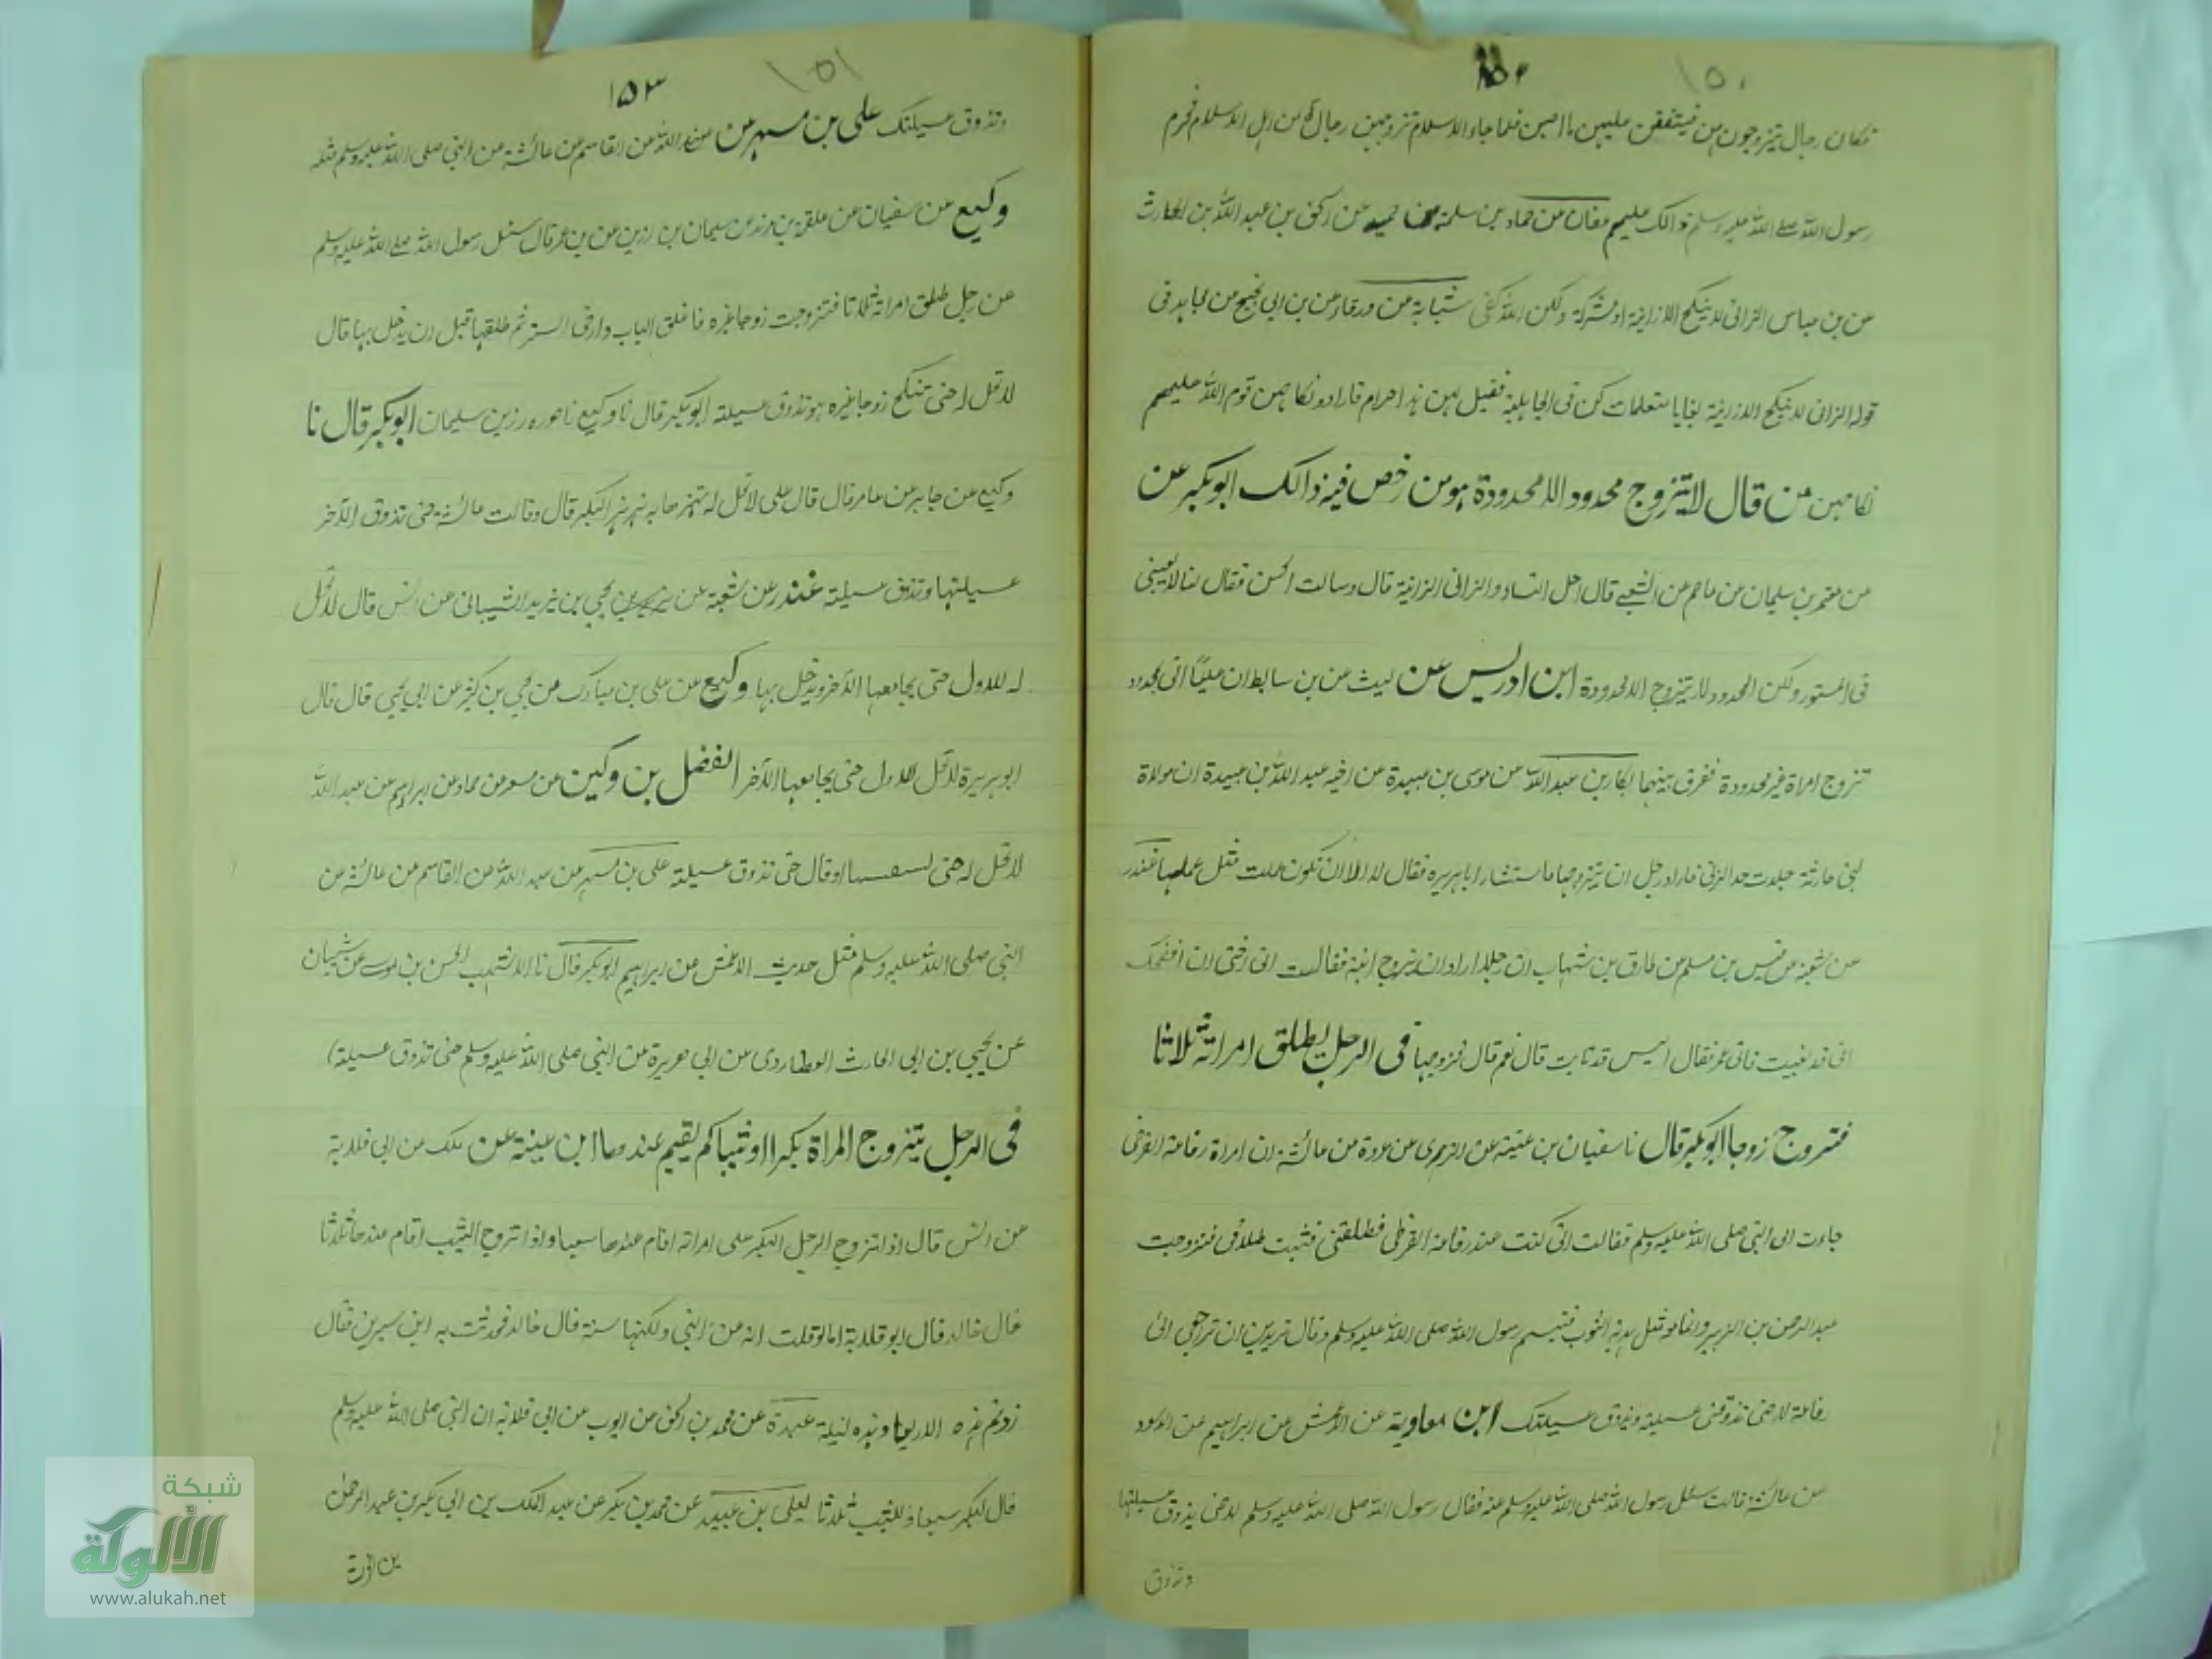 ١٥٠
١٥٢
فكان رجال يتزوجون من فيتفقن عليهن ما اصبن فلما جاء الاسلام تزوجهن رجال من اهل الاسلام فحرم
رسول الله صلى الله عليه وسلم ذالك عليهم عفان عن حماد بن سلمة عن اسحق بن عبد الله بن الحارث
عن بن عباس الزانى لا ينكح الا زانية او مشركة ولكن الله شبابة عن ورقاء عن بن ابي نجيح عن مجاهد فى
قوله الزانى لا ينكح الا زانية بغايا متعلمات كن فى الجاهلية فقيل لهن هذا حرام فارادوا نكاحهن قوم الله عليهم
نكاحهن من قال لا يتزوج محدود الا محدودة ومن رخص فيه ذالك ابوبكر عن
من معتمر بن سليمان عن عاصم عن الشعبى قال احل النساء والزانى الزانية قال وسالت الحسن فقال لنا لا يعينى
فى المستور ولكن المحدود لا يتزوج الا محدودة ابن ادريس عن ليث عن بن سابط ان عليا اتى بمحدود
تزوج امراة غير محدودة ففرق بينهما بكار بن عبد الله عن موسى بن عبيدة عن اخيه عبد الله بن عبيدة ان مولاة
لبنى حارثة جلدت حد الزنى فاراد رجل ان يتزوجها فاستشار ابا هريرة فقال لا الا ان تكون عملت مثل عملها غندر
عن شعبة عن قيس بن مسلم عن طارق بن شهاب ان رجلا اراد ان يزوج ابنته فقالت انى اخشى ان افضحك
انى قد بغيت فاتى عمر فقال اليس قد تابت قال نعم قال فزوجها فى الرجل يطلق امراته ثلاثا
فتزوج زوجا ابوبكر قال نا سفيان بن عيينة عن الزهرى عن عروة عن عائشة ان امراة رفاعة القرظى
جاءت الى النبى صلى الله عليه وسلم فقالت انى كنت عند رفاعة القرظى فطلقنى فثبت طلاقى فتزوجت
عبد الرحمن بن الزبير وانما معه مثل هدبة الثوب فتبسم رسول الله صلى الله عليه وسلم وقال تريدين ان ترجعى الى
رفاعة لا حتى تذوقى عسيلته ويذوق عسيلتك ابن معاوية عن الاعمش عن ابراهيم عن الاسود
عن عائشة قالت سئل رسول الله صلى الله عليه وسلم عنه فقال رسول الله صلى الله عليه وسلم لا حتى يذوق عسيلتها
وتذوق
١٥١
١٥٣
وتذوق عسيلتك على بن مسهر عن عبد الله عن القاسم عن عائشة عن النبى صلى الله عليه وسلم مثله
وكيع عن سفيان عن علقمة بن مرثد عن سليمان بن رزين عن بن عمر قال سئل رسول الله صلى الله عليه وسلم
عن رجل طلق امراته ثلاثا فتزوجت زوجا غيره فاغلق الباب وارخى الستر ثم طلقها قبل ان يدخل بها قال
لا تحل له حتى تنكح زوجا غيره وتذوق عسيلة ابوبكر قال نا وكيع رزين سليمان ابوبكر قال نا
وكيع عن جابر عن عامر قال قال على لا تحل له البكر قال وقالت عائشة حتى تذوق الآخر
عسيلتها وتذوق عسيلة غندر عن شعبة عن يحيى بن يزيد الشيبانى عن انس قال لا تحل
له للاول حتى يجامعها الآخر ويدخل بها وكيع عن على بن مبارك عن يحيى بن كثير عن ابي يحيى قال قال
ابو هريرة لا تحل للاول حتى يجامعها الآخر الفضل بن دكين عن مسعر عن حماد عن ابراهيم عن عبد الله
لا تحل له حتى او قال حتى تذوق عسيلة على بن مسهر عن عبد الله عن القاسم عن عائشة عن
النبى صلى الله عليه وسلم مثل حديث الاعمش عن ابراهيم ابوبكر قال نا الاشهب الحسن بن موسى عن شيبان
عن يحيى بن ابى الحارث العطاردى عن ابي هريرة عن النبى صلى الله عليه وسلم حتى تذوق عسيلة)
فى الرجل يتزوج المراة بكرا او ثيبا كم يقيم عندها ابن عيينة عن عن ابى قلابة
عن انس قال اذا تزوج الرجل البكر على امراته اقام عندها سبعا واذا تزوج الثيب اقام عندها ثلاثا
قال خالد قال ابو قلابة اما لو قلت انه من النبى ولكنها سنة قال خالد فحدثت به ابن سيرين فقال
زدتم هذه الاربعا وهذه ليلة عبدة عن محمد بن اسحق عن ايوب عن ابى قلابة ان النبى صلى الله عليه وسلم
قال للبكر سبعا وللثيب ثلاثا يعلى بن عبيد عن محمد بن بكر عن عبد الملك بن ابي بكر بن عبد الرحمن
شبكة
الألوكة
www.alukah.net